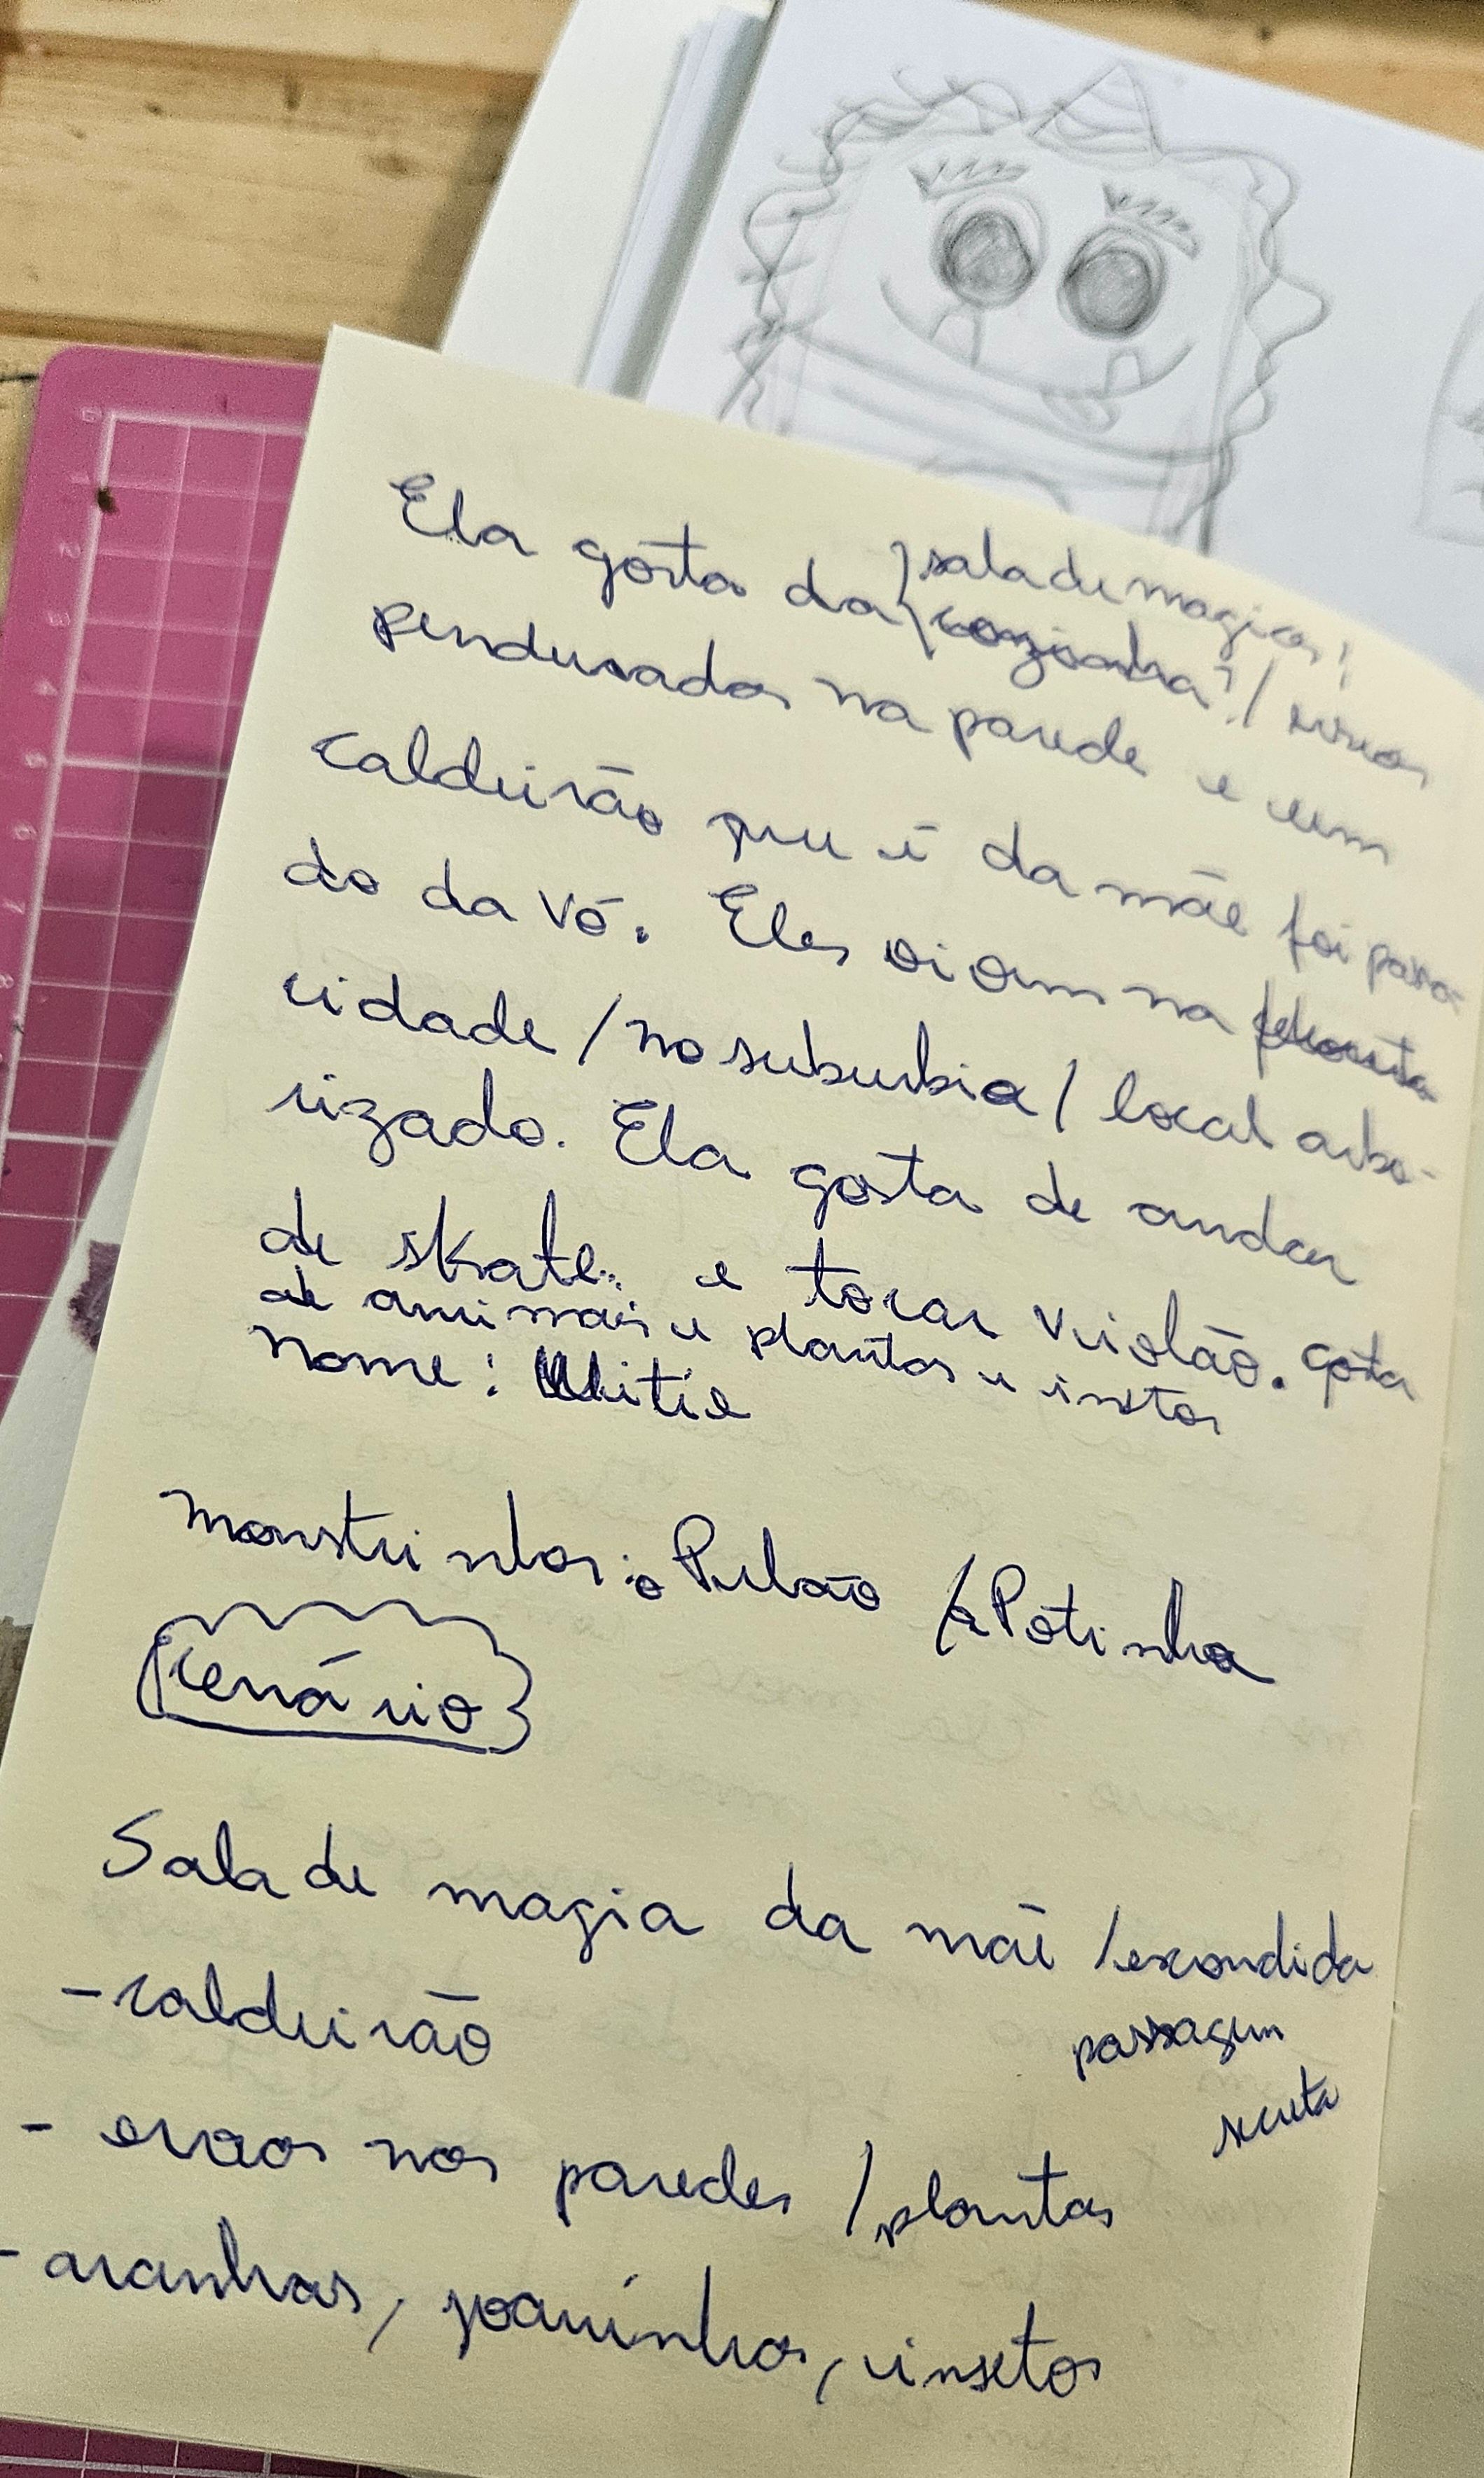 Ela gosta da { sala de magia,
cozinha? / ervas
penduradas na parede e um
caldeirão que é da mãe foi passa-
do da vó. Eles viviam na floresta
cidade / no suburbio / local arbo-
rizado. Ela gosta de andar
de skate e tocar violão. Gosta
de animais e plantas e insetos
nome:
monstrinhos: o Pulão / a Potinha
cenário
Sala de magia da mãe / escondida
passagem
secreta
- caldeirão
- ervas nas paredes / plantas
- aranhas, joaninhas, insetos